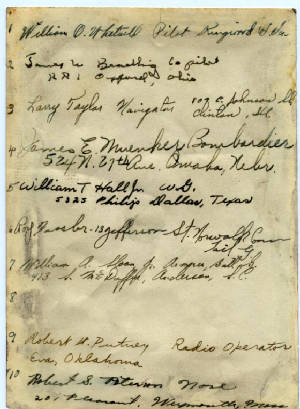 1 William O. Whetsell Pilot Kingwood
2 James W. Co pilot
RR 1 Oxford, Ohio
3 Larry Taylor Navigator 107 E. Johnson St
Clinton, Ill
4 James E. Muenker Bombardier
524 N. 27th Ave. Omaha, Nebr.
5 William T Hall Jr. W.G.
5323 Philip Dallas, Texas
6 13 Jefferson St. Norwalk Conn
Tail G
7 William A. Sloan Jr.
913 S. McDuffie, Anderson, S.C.
8
9 Robert H. Putney Radio Operator
Eva, Oklahoma
10 Robert S. Peterson Nose
Weymouth, Mass